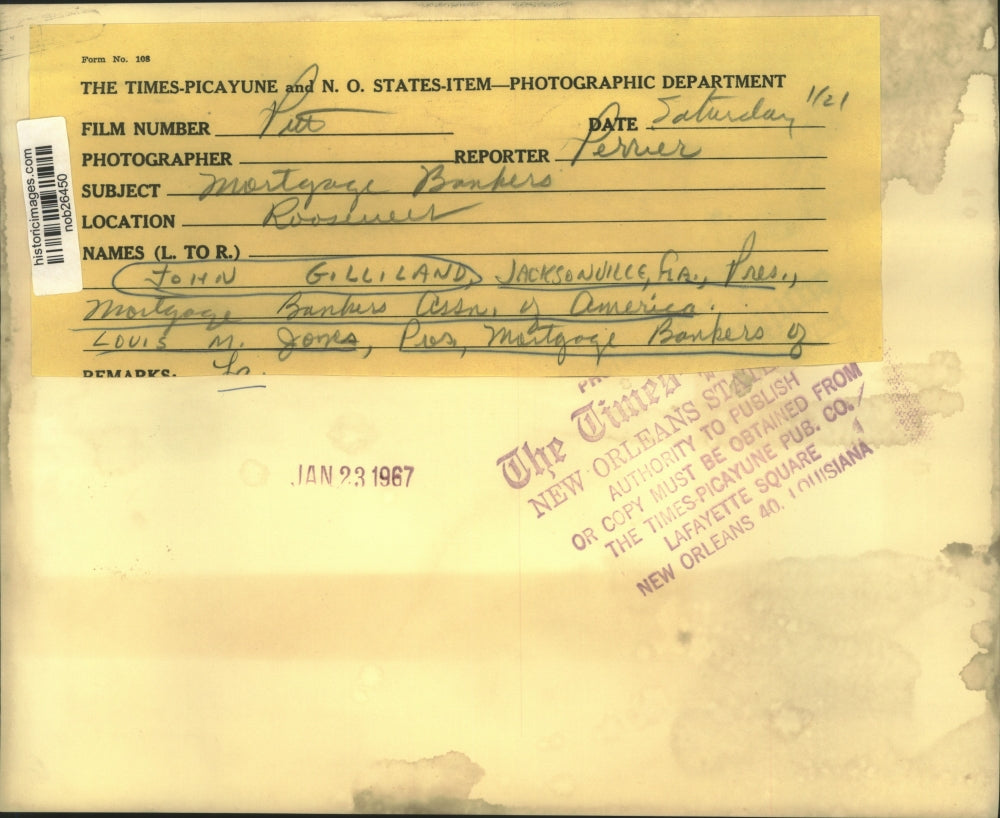 Form No. 108
THE TIMES-PICAYUNE and N. O. STATES-ITEM—PHOTOGRAPHIC DEPARTMENT
FILM NUMBER Pitt DATE Saturday 1/21
PHOTOGRAPHER REPORTER Perrier
SUBJECT Mortgage Bankers
LOCATION Roosevelt
NAMES (L. TO R.)
JOHN GILLILAND, JACKSONVILLE, Pres.,
Mortgage Bankers Assn. of America.
LOUIS M. Jones, Pres, Mortgage Bankers of
REMARKS: La.
historicimages.com
nob26450
JAN 23 1967
The Times
NEW ORLEANS STATE
AUTHORITY TO PUBLISH
OR COPY MUST BE OBTAINED FROM
THE TIMES-PICAYUNE PUB. CO.
LAFAYETTE SQUARE
NEW ORLEANS 40, LOUISIANA